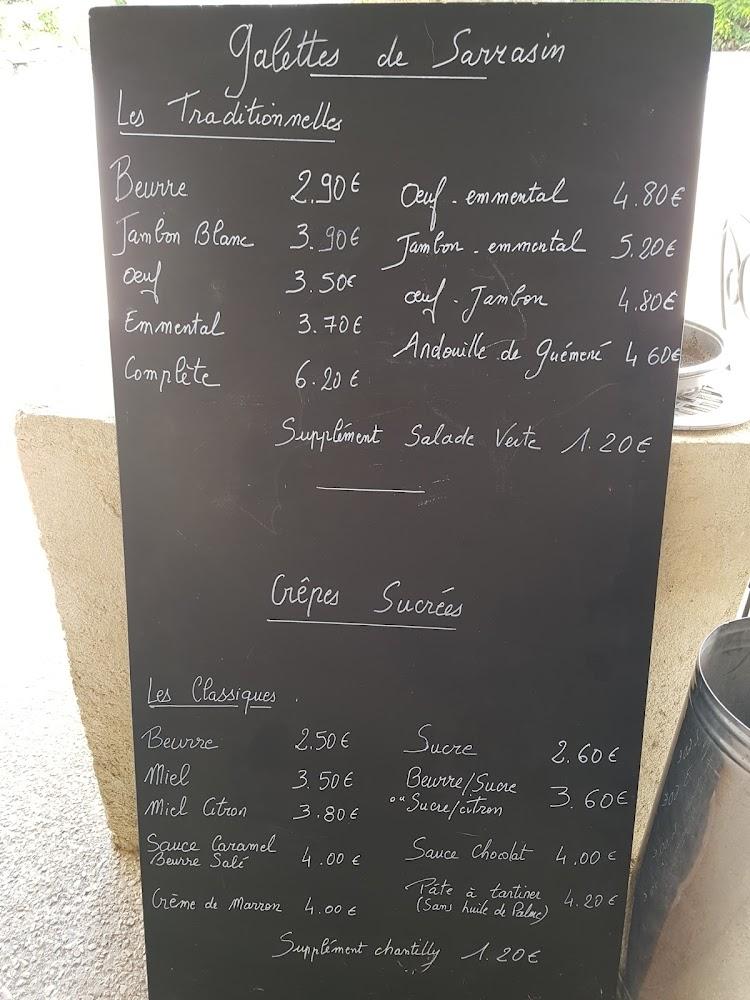 Galettes de Sarrasin
Les Traditionnelles
Beurre 2.90€
Jambon Blanc 3.90€
Œuf 3.50€
Emmental 3.70€
Complète 6.20€
Œuf - emmental 4.80€
Jambon - emmental 5.20€
Œuf - Jambon 4.80€
Andouille de Guémené 4 60€
Supplément Salade Verte 1.20€
Crêpes Sucrées
Les Classiques.
Beurre 2.50€
Miel 3.50€
Miel Citron 3.80€
Sauce Caramel
Beurre Salé 4.00€
Crème de Marron 4.00€
Sucre 2.60€
Beurre/Sucre
ou Sucre/citron 3.60€
Sauce Chocolat 4.00€
Pâte à tartiner
(Sans huile de Palme) 4.20€
Supplément chantilly 1.20€